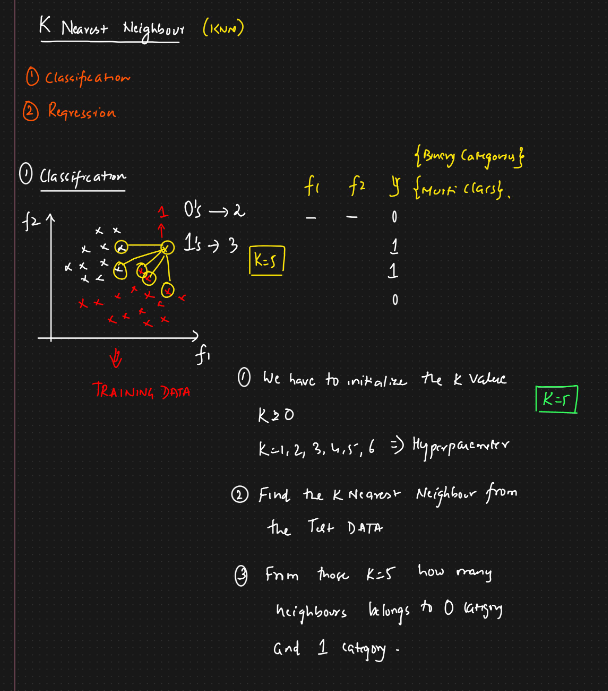 K Nearest Neighbour (KNN)
① Classification
② Regression
① Classification
{Binary Category}
{Multi Class}.
f1 f2 y
– – 0
1
1
0
f2
1
0's → 2
1's → 3
K=5
f1
TRAINING DATA
① We have to initialize the K value
K=5
K≥0
K=1, 2, 3, 4, 5, 6 ⇒ Hyperparameter
② Find the K Nearest Neighbour from
the Test DATA
③ From those K=5 how many
neighbours belongs to 0 category
and 1 category.